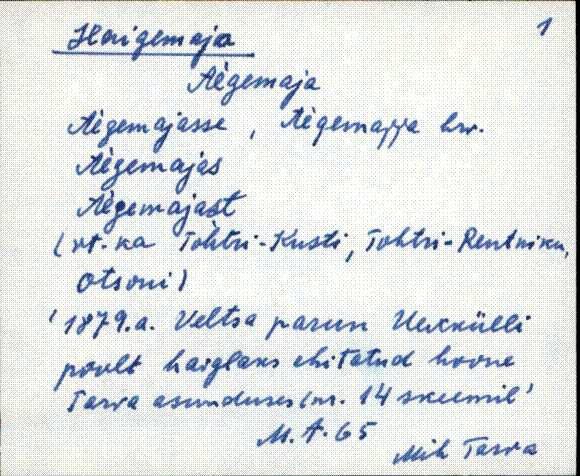 1
Haigemaja
Aègemaja
Aègemajasse, Aègemajja hrv.
Aègemajas
Aègemajast
(vt. ka Tohtri-Kusti, Tohtri-Rentniku,
Otsoni)
'1879.a. Veltsa parun Uexkülli
poolt haiglaks ehitatud hoone
Tarva asunduses (nr. 14 skeemil'
M.A. 65
Mih Tarva